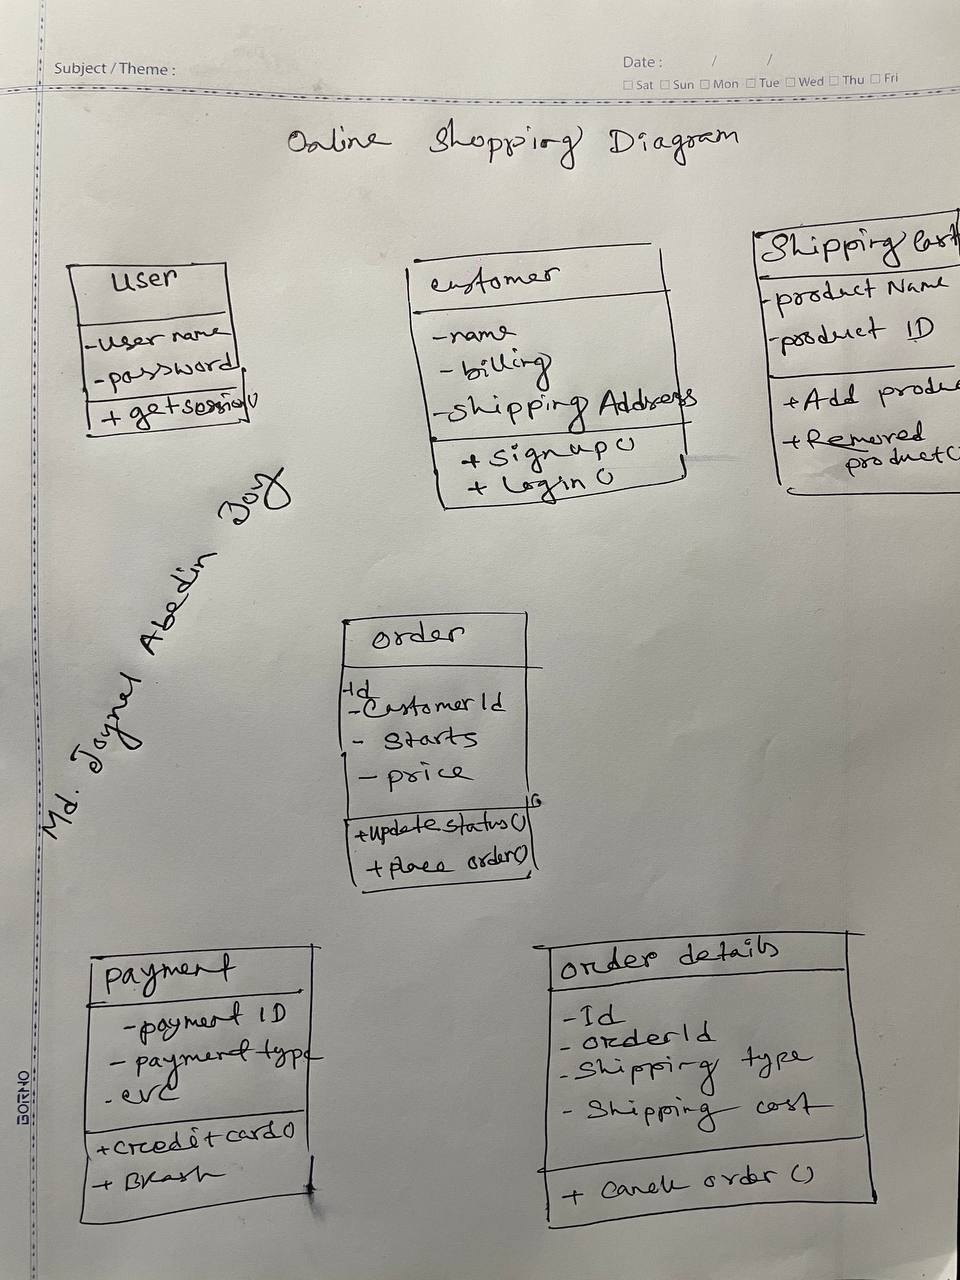 Subject / Theme :
Date : / /
Sat Sun Mon Tue Wed Thu Fri
Online Shopping Diagram
User
-User name
-password
+ getsession()
customer
-name
- billing
-shipping Address
+ Signup()
+ Login ()
Shipping Cart
-product Name
-product ID
+Add produc
+Removed
product()
Md. Joynal Abedin Joy
order
Id
-CustomerId
- Starts
- price
+Update status()
+place order()
payment
-payment ID
- payment type
- cvc
+credit card()
+ Bkash
order details
-Id
- OrderId
- Shipping type
- Shipping cost
+ order ()
BORNO